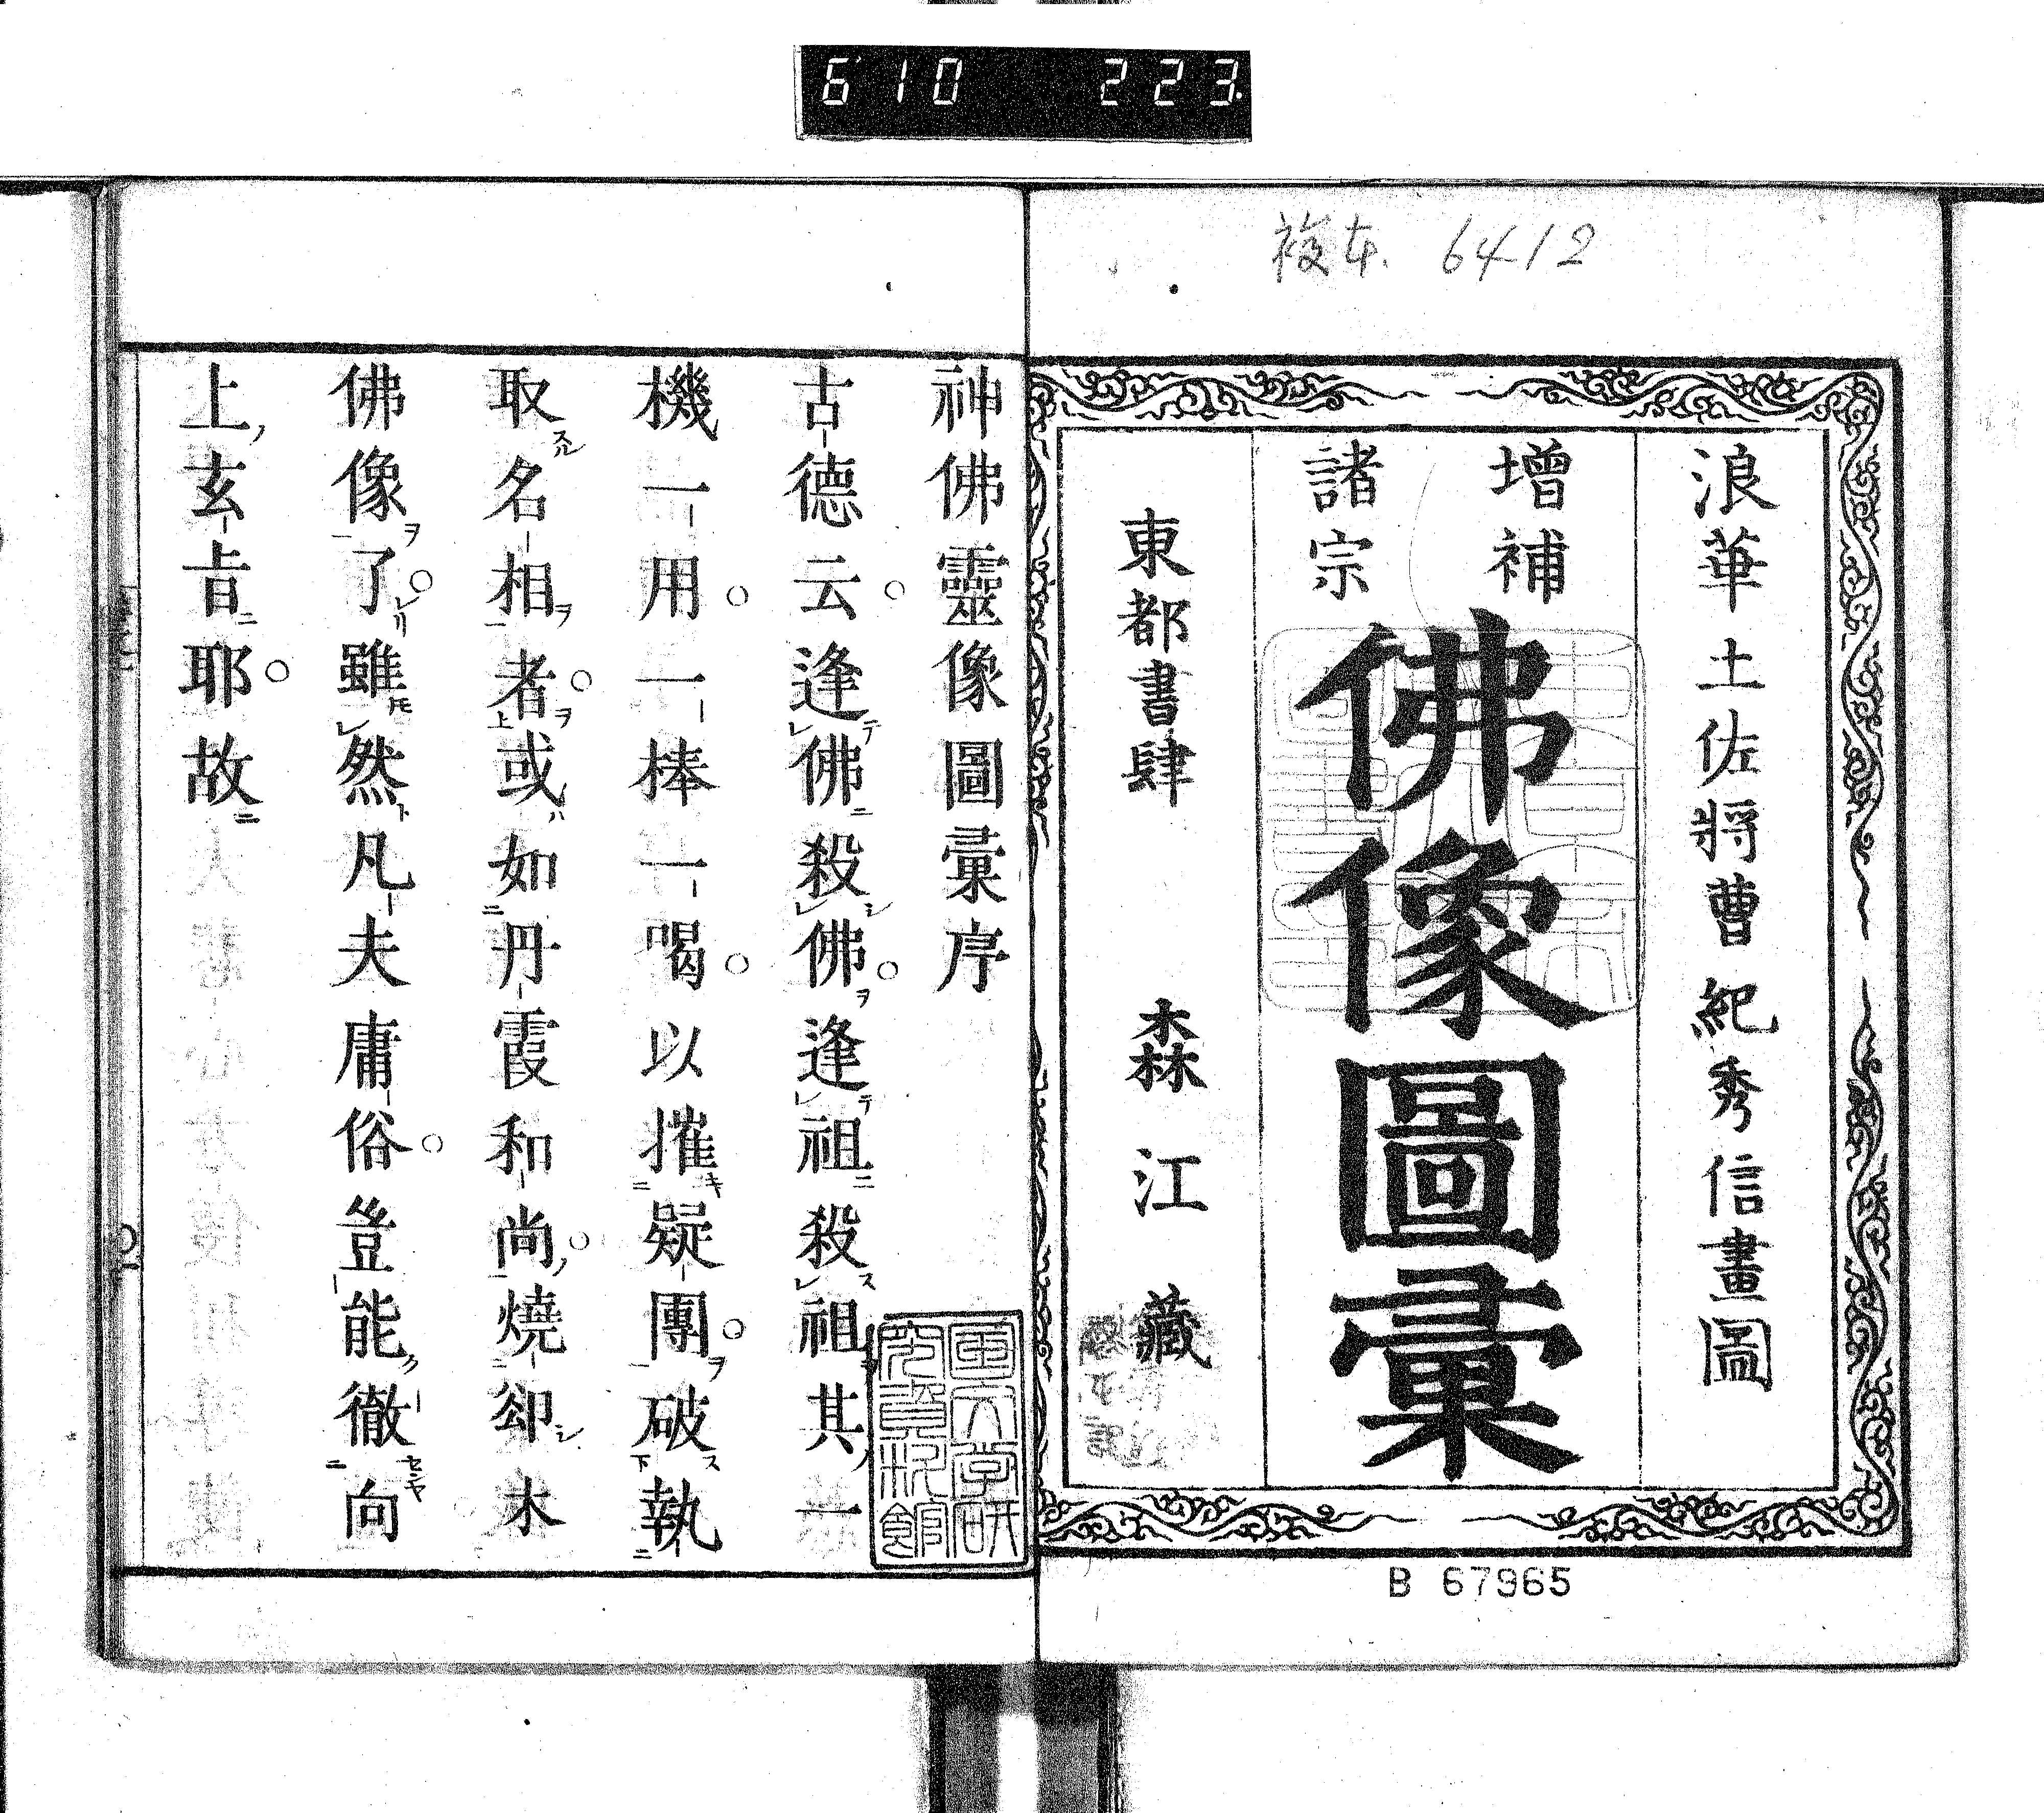 610 223
複本. 6412
浪華土佐將曹紀秀信畫圖
增補
諸宗
佛像圖彙
東都書肆 森江藏
B 67965
神佛靈像圖彙序
古德云逢佛殺佛逢祖殺祖其一
機一用一棒一喝以摧疑團破執
取名相者或如丹霞和尚燒却木
佛像了雖然凡夫庸俗豈能徹向
上玄旨耶故
國文學研
究資料館